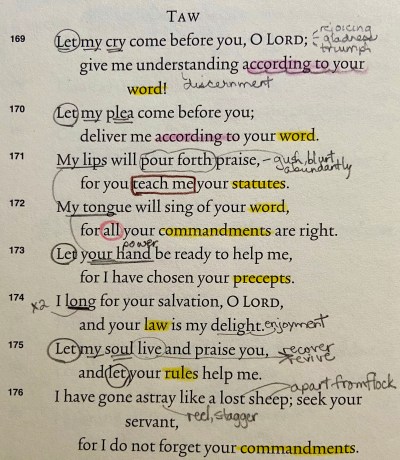 TAW
169 Let my cry come before you, O LORD; rejoicing
gladness
triumph
give me understanding according to your
word! discernment
170 Let my plea come before you;
deliver me according to your word.
171 My lips will pour forth praise, - gush, blurt
abundantly
for you teach me your statutes.
172 My tongue will sing of your word,
for all your commandments are right.
power
173 Let your hand be ready to help me,
for I have chosen your precepts.
174 x2 I long for your salvation, O LORD,
and your law is my delight. enjoyment
175 Let my soul live and praise you, recover
revive
and let your rules help me.
apart from flock
176 I have gone astray like a lost sheep; seek your
servant, reel, stagger
for I do not forget your commandments.